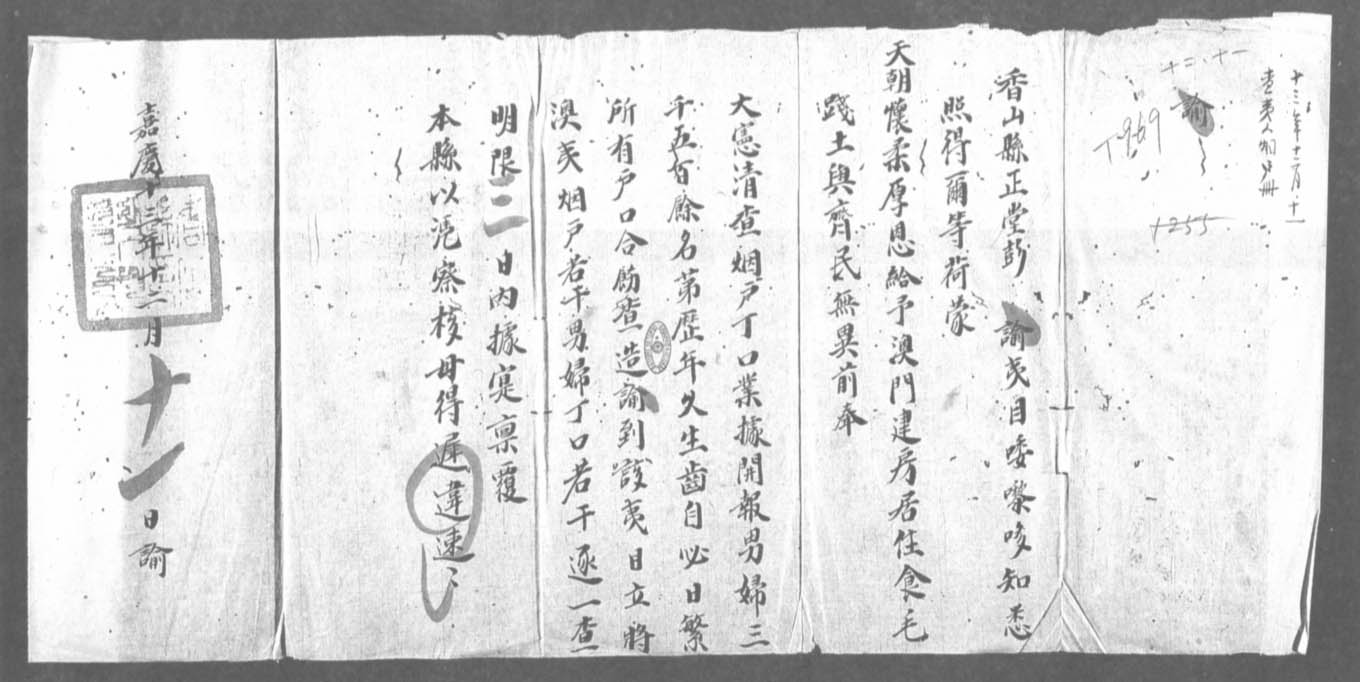 十三年十二月十一
查夷人烟戶冊
十二 十一
諭
T969
1255
香山縣正堂彭 諭夷目唩嚟哆知悉
照得爾等荷蒙
天朝懷柔厚恩給予澳門建房居住食毛
踐土與齊民無異前奉
大憲清查烟戶丁口業據開報男婦三
千五百餘名第歷年久生齒自必日繁
所有戶口合飭查造諭到該夷目立將
澳夷烟戶若干男婦丁口若干逐一查
明限二日內據寔禀覆
本縣以凴察核毋得遲違速〻
嘉慶十三年十二月十一日諭